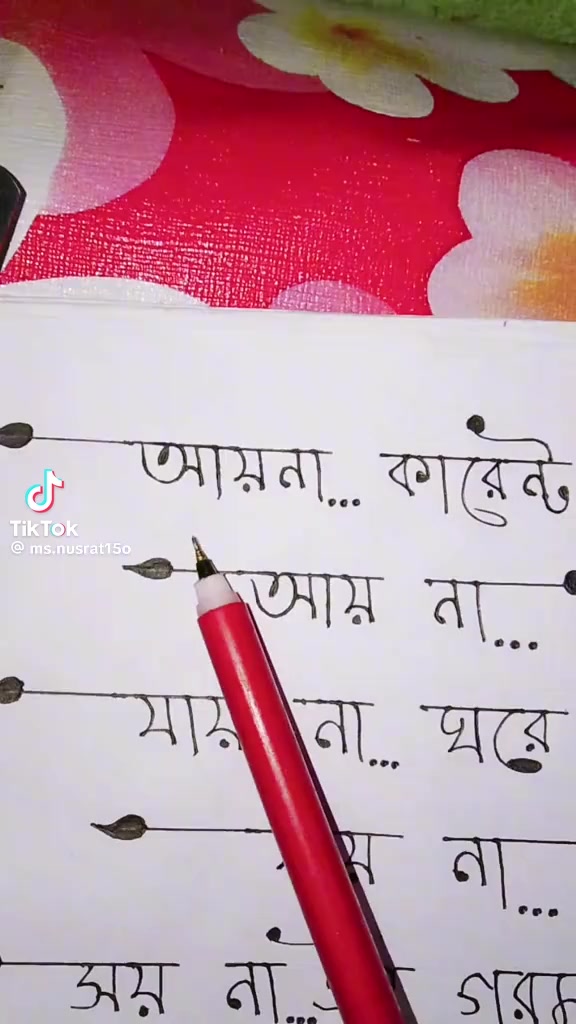 আয়না... কারেন্ট
TikTok
@ ms.nusrat15o
আয় না...
যায় না... ঘরে
না...
সয় না... গরম